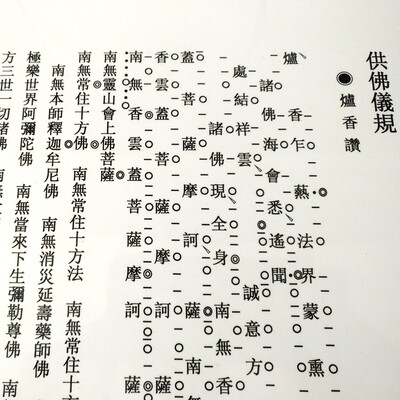 供佛儀規
◉爐香讚
爐香乍熱法界蒙熏
諸佛海會悉遙聞
處結祥雲誠意方
諸佛現全身南無香
蓋菩薩摩訶薩
香雲蓋菩薩摩訶薩
南無香雲蓋菩薩摩訶薩
南無靈山會上佛菩薩
南無常住十方佛 南無常住十方法 南無常住十方
南無本師釋迦牟尼佛 南無消災延壽藥師佛
極樂世界阿彌陀佛 南無當來下生彌勒尊佛 南
方三世一切諸佛